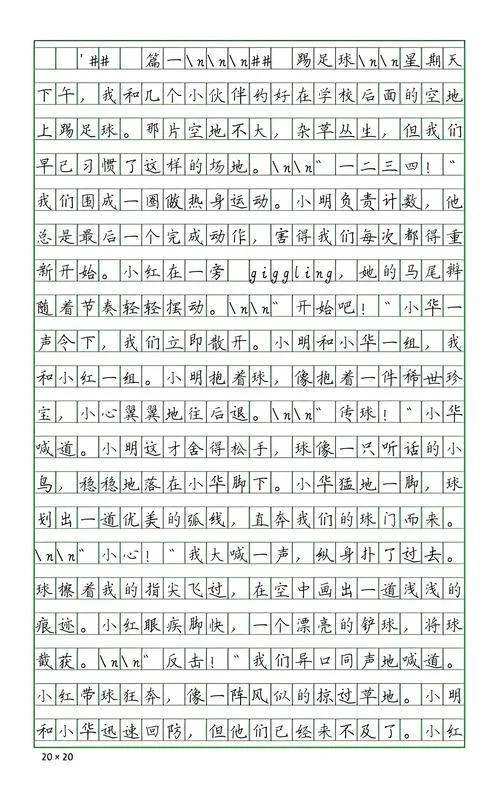 '## 篇一\n\n\n## 踢足球\n\n星期天
下午，我和几个小伙伴约好在学校后面的空地
上踢足球。那片空地不大，杂草丛生，但我们
早已习惯了这样的场地。\n\n“一二三四！“
我们围成一圈做热身运动。小明负责计数，他
总是最后一个完成动作，害得我们每次都得重
新开始。小红在一旁 giggling，她的马尾辫
随着节奏轻轻摆动。\n\n“开始吧！“小华一
声令下，我们立即散开。小明和小华一组，我
和小红一组。小明抱着球，像抱着一件稀世珍
宝，小心翼翼地往后退。\n\n“传球！“小华
喊道。小明这才舍得松手，球像一只听话的小
鸟，稳稳地落在小华脚下。小华猛地一脚，球
划出一道优美的弧线，直奔我们的球门而来。
\n\n“小心！“我大喊一声，纵身扑了过去。
球擦着我的指尖飞过，在空中画出一道浅浅的
痕迹。小红眼疾脚快，一个漂亮的铲球，将球
截获。\n\n“反击！“我们异口同声地喊道。
小红带球狂奔，像一阵风似的掠过草地。小明
和小华迅速回防，但他们已经来不及了。小红
20×20